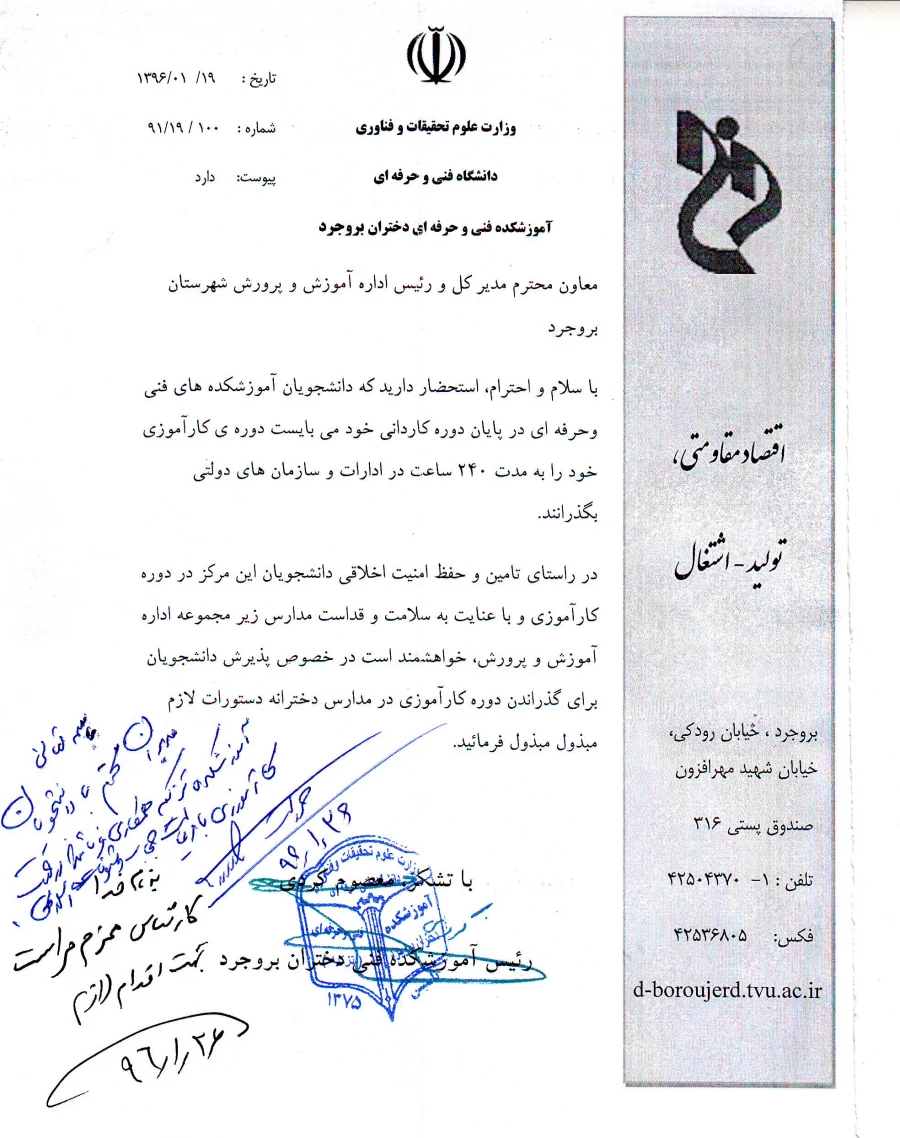 تاریخ : ۱۳۹۶/۰۱ /۱۹
شماره : ۹۱/۱۹ / ۱۰۰
پیوست: دارد
وزارت علوم تحقیقات و فناوری
دانشگاه فنی و حرفه ای
آموزشکده فنی و حرفه ای دختران بروجرد
معاون محترم مدیر کل و رئیس اداره آموزش و پرورش شهرستان
بروجرد
با سلام و احترام، استحضار دارید که دانشجویان آموزشکده های فنی
وحرفه ای در پایان دوره کاردانی خود می بایست دوره ی کارآموزی
خود را به مدت ۲۴۰ ساعت در ادارات و سازمان های دولتی
بگذرانند.
در راستای تامین و حفظ امنیت اخلاقی دانشجویان این مرکز در دوره
کارآموزی و با عنایت به سلامت و قداست مدارس زیر مجموعه اداره
آموزش و پرورش، خواهشمند است در خصوص پذیرش دانشجویان
برای گذراندن دوره کارآموزی در مدارس دخترانه دستورات لازم
مبذول مبذول فرمائید.
با تشکر. معصوم کردی
رئیس آموزشکده فنی دختران بروجرد
وزارت علوم تحقیقات
آموزشکده
تاسیس
۱۳۷۵
حراست
۹۶٫۱٫۲۶
بنام خدا
کارشناس محترم حراست
جهت اقدام لازم
۹۶٫۱٫۲۶
اقتصاد مقاومتی،
تولید - اشتغال
بروجرد ، خیابان رودکی،
خیابان شهید مهرافزون
صندوق پستی ۳۱۶
تلفن : ۱- ۴۲۵۰۴۳۷۰
فکس: ۴۲۵۳۶۸۰۵
d-boroujerd.tvu.ac.ir